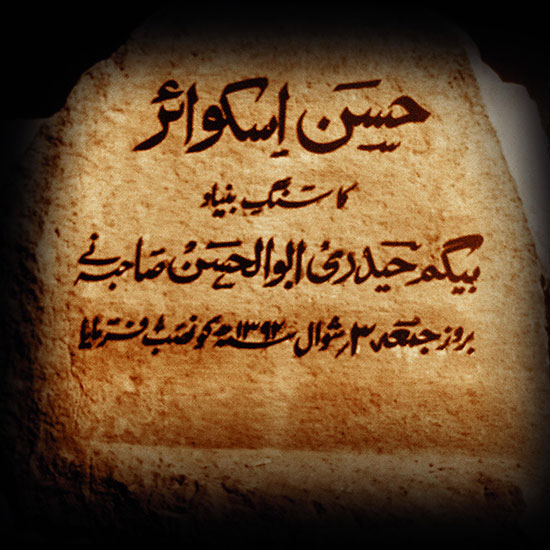 حسن اسکوائر
کا سنگِ بنیاد
بیگم حیدری ابوالحسن صاحبہ نے
بروز جمعہ ۳ر شوال سنہ ۱۳۹۲ھ کو نصب فرمایا